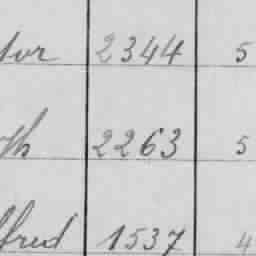 tor 2344 5
th 2263 5
lfred 1537 4